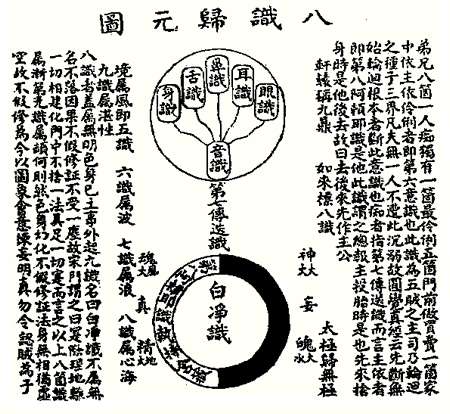 八識歸元圖
弟兄八箇一人痴獨有一箇最伶俐五箇門前做買賣一箇家
中依主依伶俐者即第六意識也此識為五賊之主司乃輪迴
之種子三界凡夫無一人不遭此沉溺故圓覺真經云先斷無
始輪迴根本者斷此意識也痴者指第七傳送識而言主依者
即第八阿賴耶識是他此識謂之總報主投胎時是也先來捨
身時是他後去故曰去後來先作主公
軒轅稱九鼎 如來標八識
眼識
耳識
鼻識
舌識
身識
音識
第七傳送識
太極歸無極
神火
妄
魄水
白淨識
魂風
真
精地
境屬風即五識 六識屬波 七識屬浪 八識屬心海
九識屬湛性
八識者蓋屬無明色身巳上事外起九識名曰白淨識不屬無
名不落因果不假修證不受一塵故宗門謂之曰是際理地
一切相建化門中不捨一法真足一切言之以上八箇識
屬漸第九識屬頓何則色身幻化不假修證法身無相獨虛
空故不假修為今以圖象會意陳妄明真勿令認賊為子